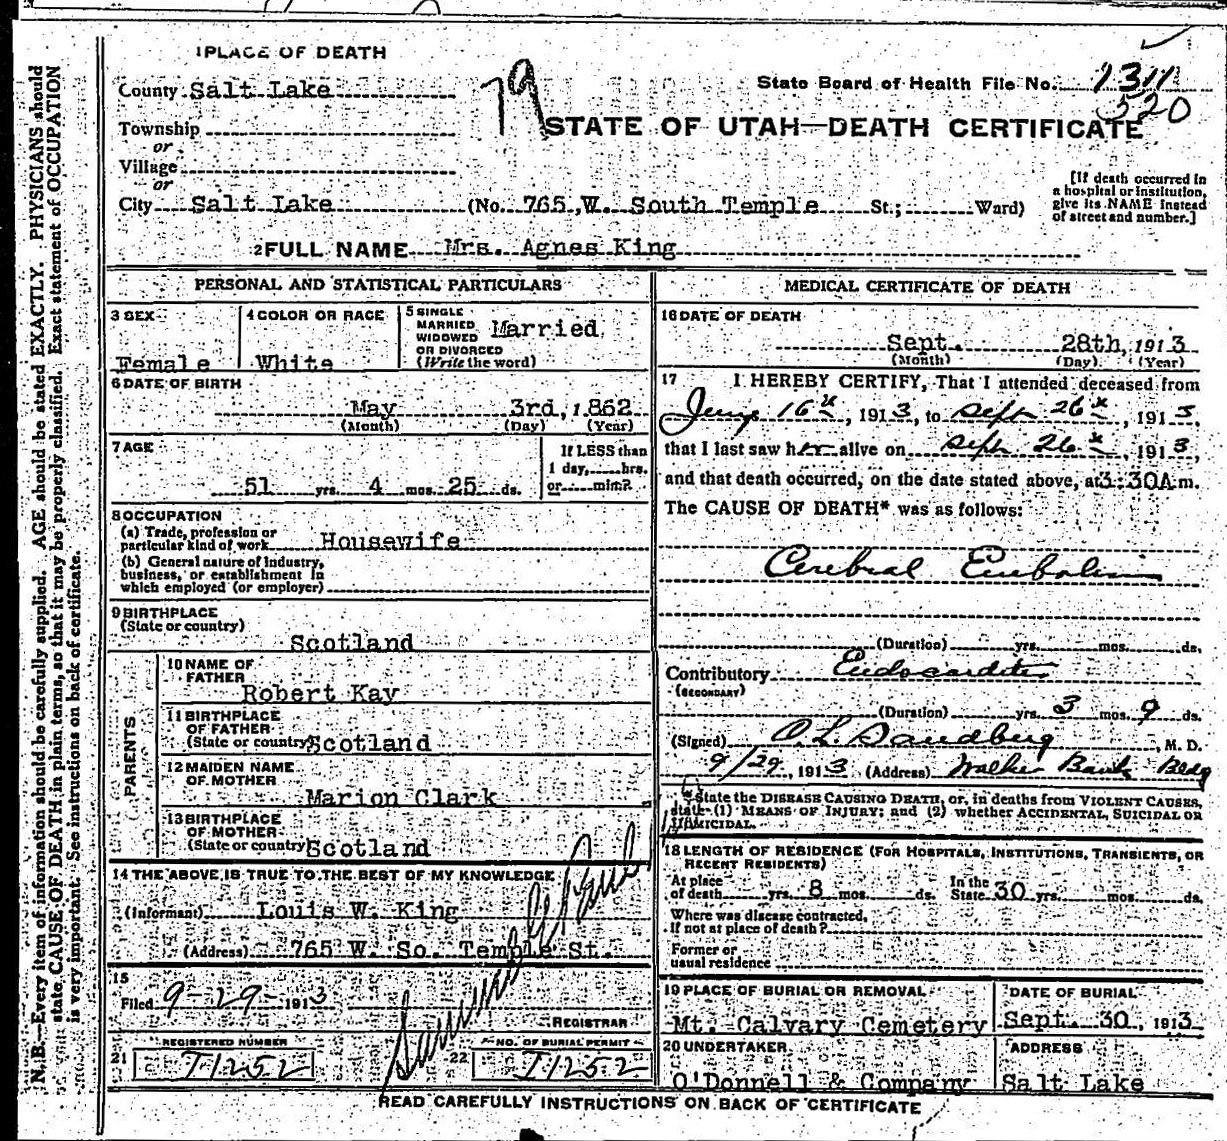 1 PLACE OF DEATH
County Salt Lake
79
State Board of Health File No. 1311
520
STATE OF UTAH—DEATH CERTIFICATE
Township
or
Village
or
City Salt Lake (No. 765, W. South Temple St.; Ward)
[If death occurred in a hospital or institution, give its NAME instead of street and number.]
2 FULL NAME Mrs. Agnes King
PERSONAL AND STATISTICAL PARTICULARS
3 SEX
Female
4 COLOR OR RACE
White
5 SINGLE
MARRIED
WIDOWED
OR DIVORCED
(Write the word)
Married
6 DATE OF BIRTH
May 3rd, 1862
(Month) (Day) (Year)
7 AGE
51 yrs. 4 mos. 25 ds.
If LESS than
1 day, hrs.
or min.?
8 OCCUPATION
(a) Trade, profession or
particular kind of work Housewife
(b) General nature of industry,
business, or establishment in
which employed (or employer)
9 BIRTHPLACE
(State or country)
Scotland
PARENTS
10 NAME OF
FATHER
Robert Kay
11 BIRTHPLACE
OF FATHER
(State or country) Scotland
12 MAIDEN NAME
OF MOTHER
Marion Clark
13 BIRTHPLACE
OF MOTHER
(State or country) Scotland
14 THE ABOVE IS TRUE TO THE BEST OF MY KNOWLEDGE
(Informant) Louis W. King
(Address) 765 W. So. Temple St.
15
Filed 9-29-1913
REGISTRAR
REGISTERED NUMBER
21 J1252
NO. OF BURIAL PERMIT
22 J1252
MEDICAL CERTIFICATE OF DEATH
16 DATE OF DEATH
Sept. 28th, 1913
(Month) (Day) (Year)
17 I HEREBY CERTIFY, That I attended deceased from
16th, 1913, to Sept 26th, 1913,
that I last saw her alive on Sept 26th, 1913,
and that death occurred, on the date stated above, at 3:30A.m.
The CAUSE OF DEATH* was as follows:
Cerebral Embolism
(Duration) yrs. mos. ds.
Contributory Endocarditis
(SECONDARY)
(Duration) yrs. 3 mos. 9 ds.
(Signed) O. L. Sandberg, M. D.
9/29, 1913 (Address) Walker Bank Bldg
*State the DISEASE CAUSING DEATH, or, in deaths from VIOLENT CAUSES,
state (1) MEANS OF INJURY; and (2) whether ACCIDENTAL, SUICIDAL OR
HOMICIDAL.
18 LENGTH OF RESIDENCE (FOR HOSPITALS, INSTITUTIONS, TRANSIENTS, OR
RECENT RESIDENTS)
At place
of death yrs. 8 mos. ds. In the
State 30 yrs. mos. ds.
Where was disease contracted,
if not at place of death?
Former or
usual residence
19 PLACE OF BURIAL OR REMOVAL
Mt. Calvary Cemetery
DATE OF BURIAL
Sept. 30, 1913
20 UNDERTAKER
O'Donnell & Company
ADDRESS
Salt Lake
READ CAREFULLY INSTRUCTIONS ON BACK OF CERTIFICATE
N. B.—Every item of information should be carefully supplied. AGE should be stated EXACTLY. PHYSICIANS should
state CAUSE OF DEATH in plain terms, so that it may be properly classified. Exact statement of OCCUPATION
is very important. See instructions on back of certificate.